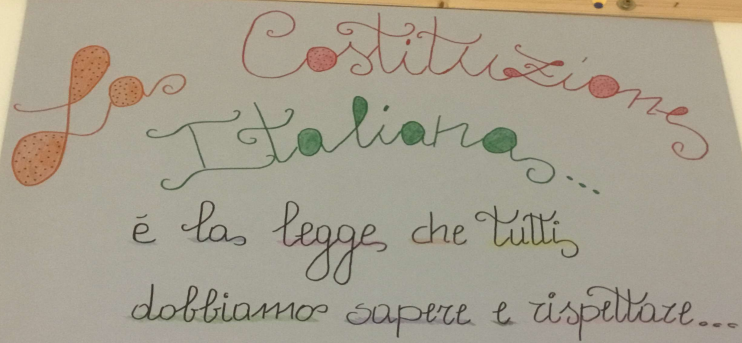 La Costituzione
Italiana...
é la legge che tutti
dobbiamo sapere e rispettare...